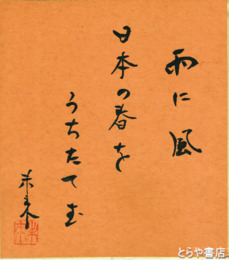 雨に風
日本の春を
うちたて玉
未来
とらや書店